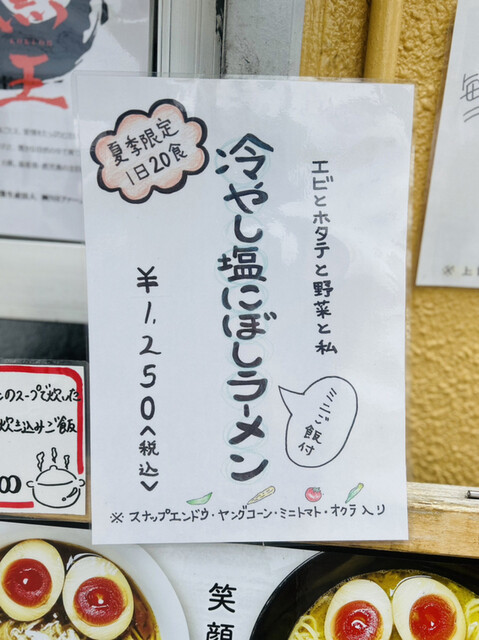 夏季限定
1日20食
エビとホタテと野菜と私
冷やし塩にぼしラーメン
ミニご飯付
¥1,250〈税込〉
※スナップエンドウ・ヤングコーン・ミニトマト・オクラ入り
のスープで炊いた
炊き込みご飯
00
王
笑顔